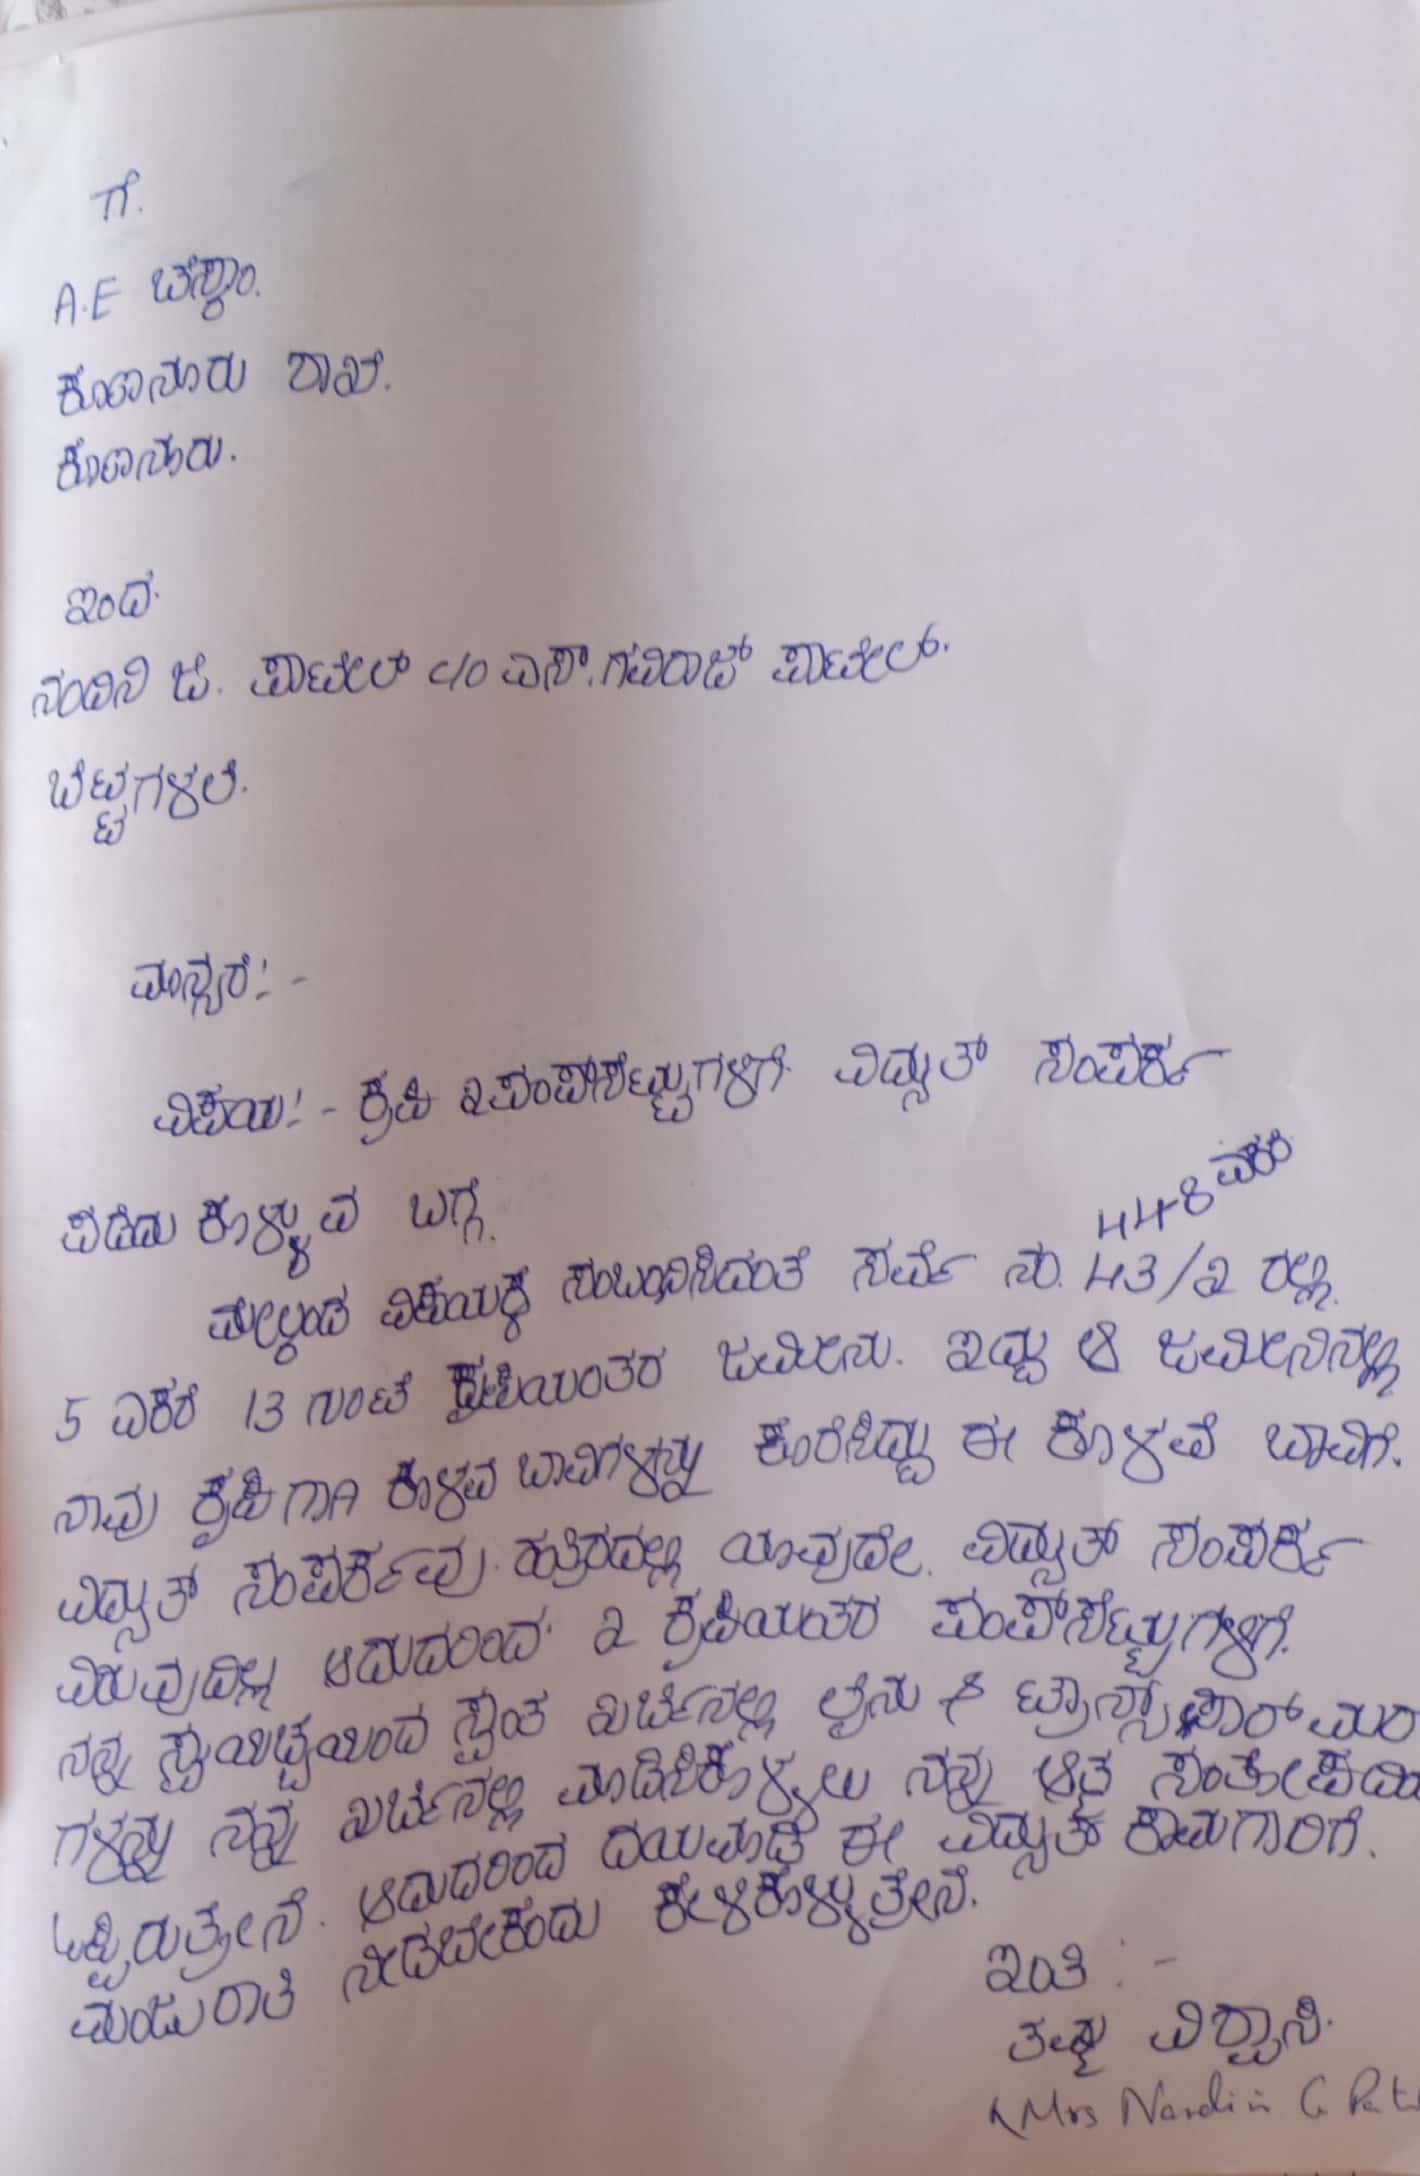 ಗೆ.
A.E ಚೆಸ್ಕಾಂ.
ಕೊಣನೂರು ಶಾಖೆ.
ಕೊಣನೂರು.
ಇಂದ.
ನಂದಿನಿ ಜಿ. ಪಾಟೀಲ್ c/o ಎಸ್.ಗವಿರಾಜ್ ಪಾಟೀಲ್.
ಬೆಟ್ಟಗಳಲೆ.
ಮಾನ್ಯರೆ:-
ವಿಷಯ:- ಕೃಷಿ ೩ಪಂಪ್‌ಸೆಟ್ಟುಗಳಿಗೆ. ವಿದ್ಯುತ್ ಸಂಪರ್ಕ
ಪಡೆದು ಕೊಳ್ಳುವ ಬಗ್ಗೆ.
448 ಎಕರೆ
ಮೇಲ್ಕಂಡ ವಿಷಯಕ್ಕೆ ಸಂಬಂಧಿಸಿದಂತೆ ಸರ್ವೆ ನಂ. 43/೩ ರಲ್ಲಿ.
5 ಎಕರೆ 13 ಗುಂಟೆ ಕೃಷಿಯೇತರ ಜಮೀನು. ಇದ್ದು ಆ ಜಮೀನಿನಲ್ಲಿ
ನಾವು ಕೃಷಿಗಾಗಿ ಕೊಳವೆ ಬಾವಿಗಳನ್ನು ಕೊರೆಸಿದ್ದು ಈ ಕೊಳವೆ ಬಾವಿಗೆ.
ವಿದ್ಯುತ್ ಸಂಪರ್ಕವು. ಹತ್ತಿರದಲ್ಲಿ ಯಾವುದೇ. ವಿದ್ಯುತ್ ಸಂಪರ್ಕ
ವಿರುವುದಿಲ್ಲ ಆದುದರಿಂದ. ೩ ಕೃಷಿಯೇತರ ಪಂಪ್‌ಸೆಟ್ಟುಗಳಿಗೆ.
ನನ್ನ ಸ್ವಯಿಚ್ಛೆಯಿಂದ ಸ್ವಂತ ಖರ್ಚಿನಲ್ಲಿ ಲೈನು & ಟ್ರಾನ್ಸ್‌ಫಾರ್ಮರ
ಗಳನ್ನು ನನ್ನ ಖರ್ಚಿನಲ್ಲಿ ಮಾಡಿಸಿಕೊಳ್ಳಲು ನನ್ನ ಆತ್ಮ ಸಂತೋಷದಿಂ
ಒಪ್ಪಿರುತ್ತೇನೆ. ಆದುದರಿಂದ ದಯಮಾಡಿ ಈ ವಿದ್ಯುತ್ ಕಾಮಗಾರಿಗೆ.
ಮಂಜುರಾತಿ ನೀಡಬೇಕೆಂದು ಕೇಳಿಕೊಳ್ಳುತ್ತೇನೆ.
ಇಂತಿ:-
ತಮ್ಮ ವಿಶ್ವಾಸಿ.
(Mrs Nandini G